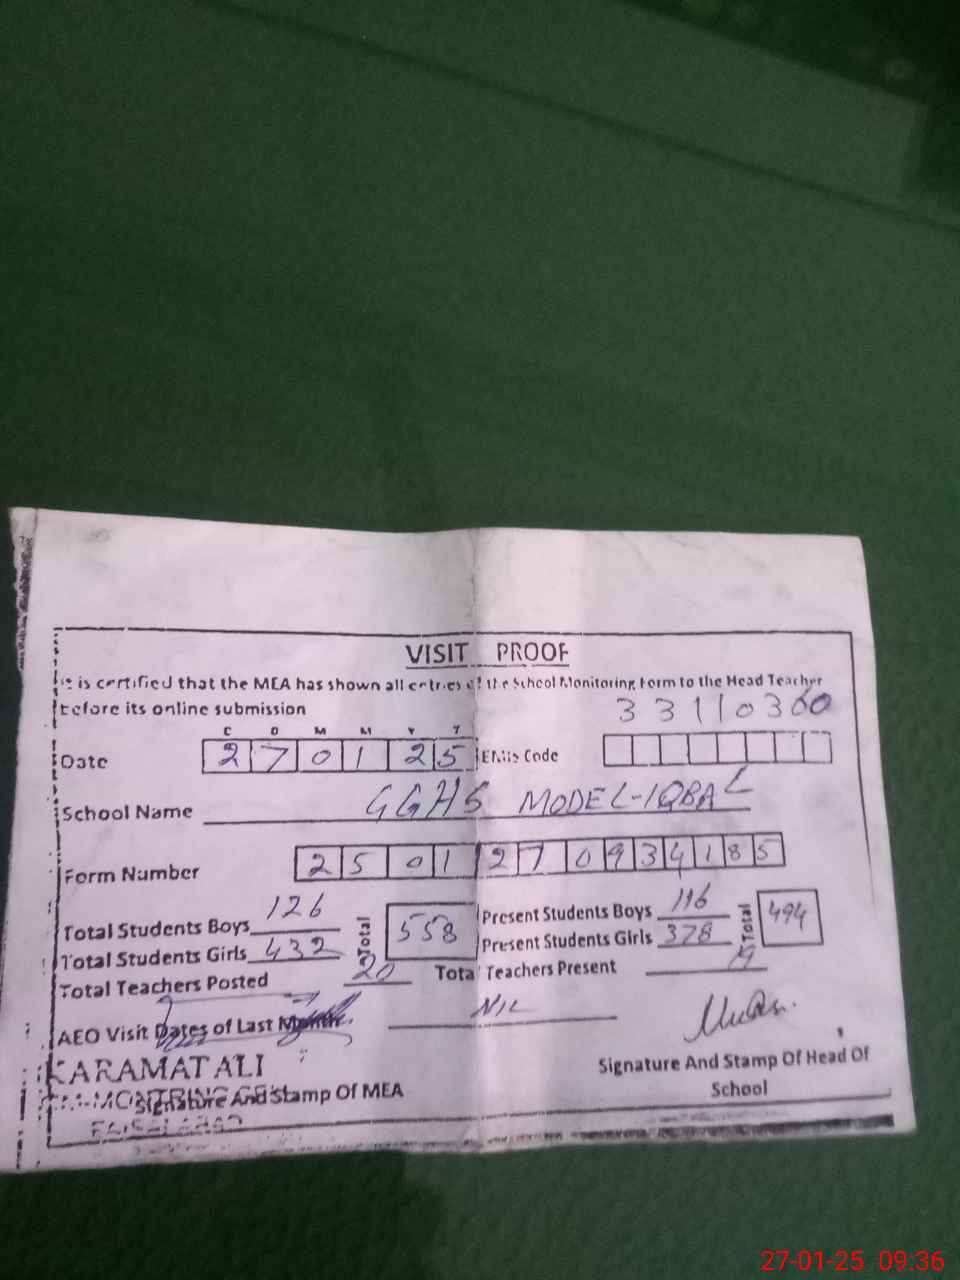 VISIT PROOF
It is certified that the MEA has shown all entries of the School Monitoring Form to the Head Teacher
before its online submission
33110360
D D M M Y Y
Date 27 01 25 EMIS Code
School Name GGHS MODEL-IQBAL
Form Number 2501270934185
Total Students Boys 126 Total 558 Present Students Boys 116 Total 494
Total Students Girls 432 Present Students Girls 378
Total Teachers Posted 20 Total Teachers Present 19
AEO Visit Dates of Last Month NIL
KARAMAT ALI
Signature And Stamp Of MEA
FAISALABAD
Signature And Stamp Of Head Of
School
27-01-25 09:36